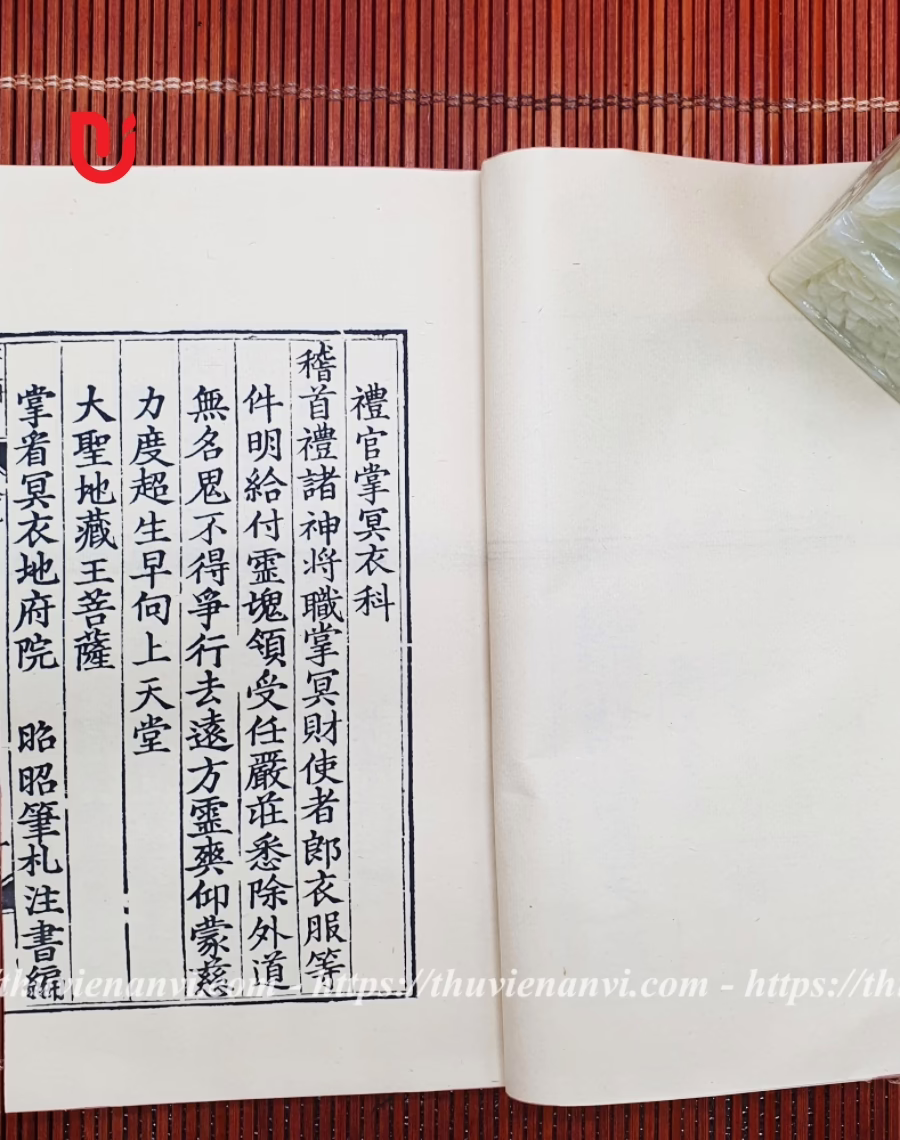 禮官掌冥衣科
稽首禮諸神将職掌冥財使者郎衣服等
件明給付霊塊領受任嚴莊悉除外道
無名鬼不得爭行去遠方霊爽仰蒙慈
力度超生早向上天堂
大聖地藏王菩薩
掌看冥衣地府院　昭昭筆札注書編
https://thuvienanvi.com - https://thuvienanvi.com - https://th